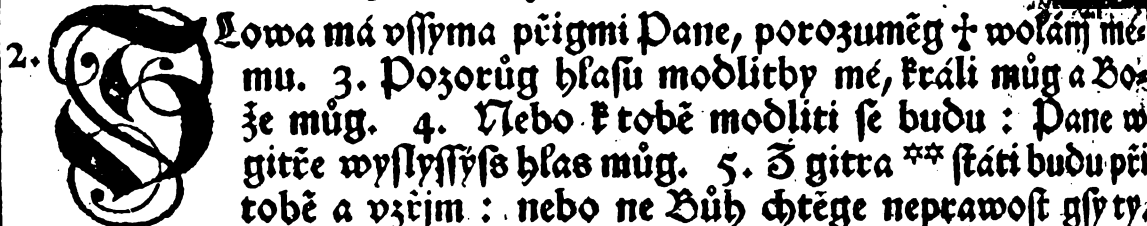 2. SLowa má vſſyma přigmi Pane, porozuměg ☩ wolánj mé⸗
mu. 3. Pozorůg hlaſu modlitby mé, králi můg a Bo⸗
že můg. 4. Nebo k tobě modliti ſe budu : Pane w
gitře wyſlyſſýſs hlas můg. 5. Z gitra ** ſtáti budu při
tobě a vzřjm : nebo ne Bůh chtěge neprawoſt gſy ty.